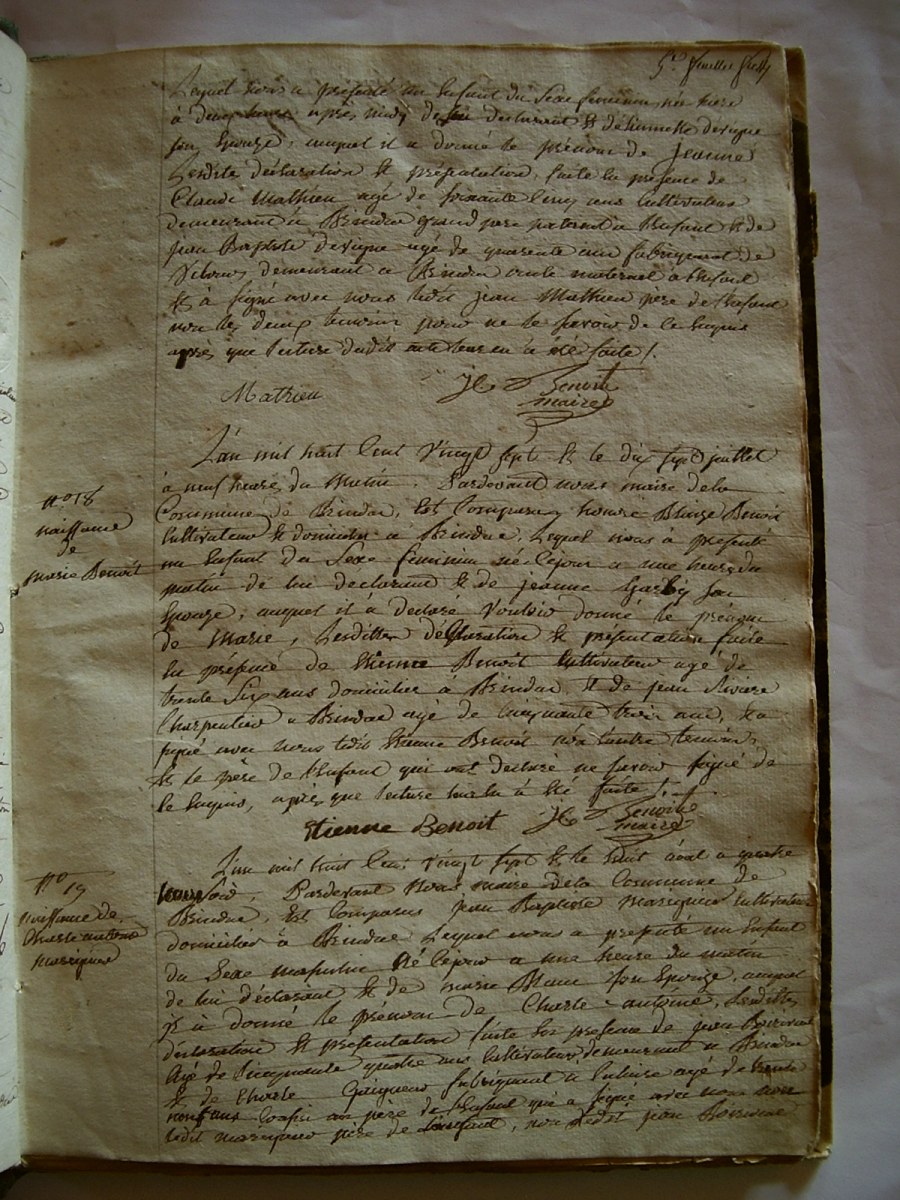 5e feuillet
Lequel nous a présenté un Enfant du Sexe feminin, née hier
à deux heures après midi de lui declarant & d'etiennette devigne
son Epouze, auquel il a donné le prénom de Jeanne
Lesdite déclaration & présentation, faite en présence de
Claude Mathieu agé de soixante cinq ans Cultivateur
demeurant à Brindas grand pere paternel a l'Enfant & de
jean Baptiste devigne agé de quarente ans fabriquant de
Velours demeurant a Brindas oncle maternel a l'Enfant
Et à signé avec nous ledit jean Mathieu père de l'enfant
non les deux temoins pour ne le savoir de ce requis
après que lecture dudit acte leur en à été faite /.
Mathieu Benoit
maire
L'an mil huit Cent Vingt Sept & le dix sept juillet
à neuf heures du Matin. Pardevant nous maire dela
Commune de Brindas, Est Comparu Benoit
Cultivateur & domicilié à Brindas, Lequel nous a présenté
un Enfant du Sexe feminin né Cejour a une heure du
matin de lui declarant & de jeanne son
Epouze, auquel il à declaré Vouloir donné le prénom
de Marie, Lesdittes déClaration & présentation faite
En présence de Etienne Benoit Cultivateur agé de
trente Six ans domicilié à Brindas & de jean Riviere
Charpentier a Brindas agé de Cinquante trois ans, & a
signé avec nous ledit Etienne Benoit non l'autre temoin,
Et le père de l'Enfant qui ont declaré ne savoir signé de
ce requis, après que lecture leur en à été faite /.
Etienne Benoit Benoit
maire
L'an mil huit Cent Vingt Sept & le huit aout a quatre
heures Soir. Pardevant Nous maire dela Commune de
Brindas, Est Comparus jean Baptiste Cultivateur
domicilié à Brindas Lequel nous a présenté un Enfant
du Sexe masculin Né Cejour a une heure du matin
de lui déclarant & de marie Blanc Son Epouze, auquel
il à donné le prenom de Charle antoine, Lesdittes
déclaration & présentation faite En présence de jean
Agé de Cinquante quatre ans Cultivateur demeurant a Brindas
& de Charle fabriquant a agé de trente
neuf ans Cousin au père de l'Enfant qui a signé avec nous
ledit père de l'enfant, non ledit jean
No 18
naissance
de
marie Benoit
No
19
Naissance de
Charle antoine